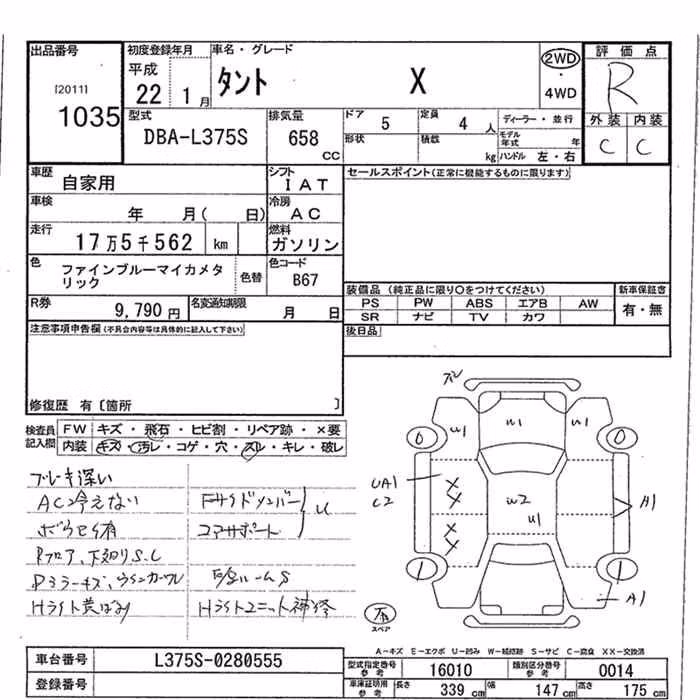 出品番号 初度登録年月 車名・グレード 評価点
[2011] 1035
平成 22 1月
タント X
2WD ・ 4WD
R
型式 DBA-L375S
排気量 658 CC
ドア 5 定員 4 人
ディーラー・並行
形状 積載 kg
モデル年式 年
ハンドル 左・右
外装 内装
C C
車歴 自家用
シフト IAT
セールスポイント(正常に機能するものに限ります)
車検 年 月( 日)
冷房 AC
走行 17万5千562 km
燃料 ガソリン
色 ファインブルーマイカメタリック
色替
色コード B67
装備品 (純正品に限り○をつけてください)
新車保証書
PS PW ABS エアB AW
SR ナビ TV カワ
有・無
R券 9,790円
名変通知期限 月 日
後日品
注意事項申告欄(不具合内容等は具体的に記入して下さい)
修復歴 有〔箇所 〕
検査員記入欄
FW キズ・飛石・ヒビ割・リペア跡・×要
内装 キズ・汚レ・コゲ・穴・スレ・キレ・破レ
ブレーキ深い
AC冷えない
コアサポート
U
Rフロア、下廻りS.C
Hライト黄ばみ
Hライトユニット補修
U1 U1 U1
0 0
UA1
C2
W2
U1
A1
1 1
A1
スペア
A-キズ E-エクボ U-凹み W-補修跡 S-サビ C-腐食 XX-交換済
車台番号 L375S-0280555
型式指定番号 参考 16010
類別区分番号 参考 0014
登録番号
車庫証明用 参考 長さ 339 cm 幅 147 cm 高さ 175 cm